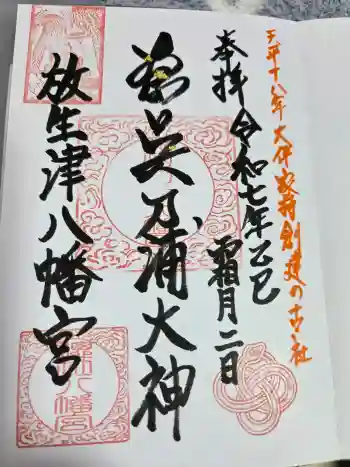 天平十八年大伴家持創建の古社
奉拝 令和七年乙巳 霜月二日
奈呉乃浦大神
放生津八幡宮